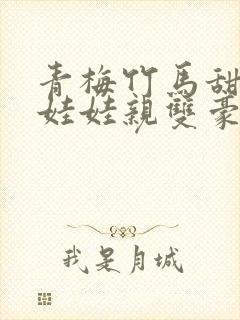 青梅竹馬甜
娃娃親雙豪
我是月城